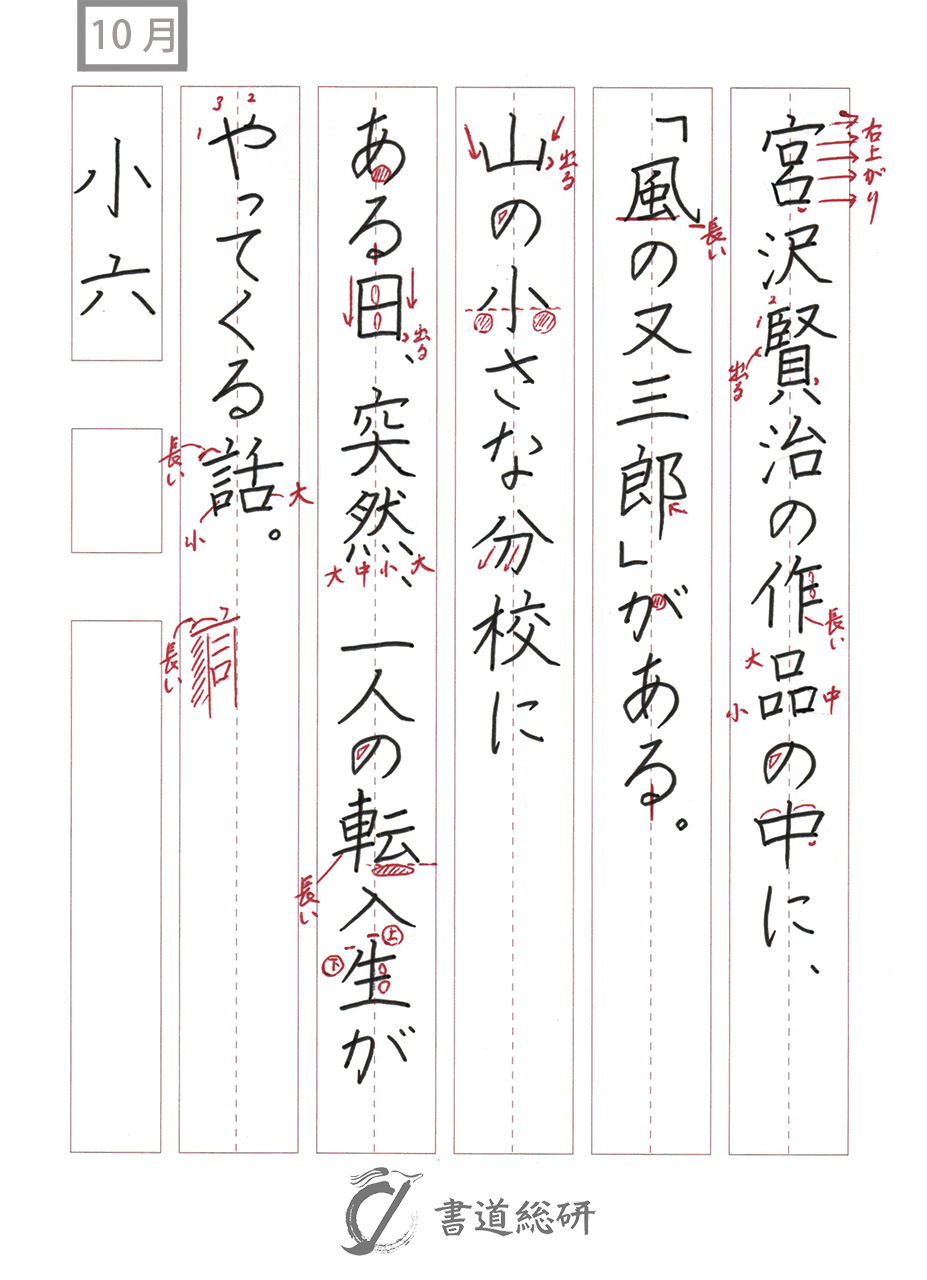 10月
宮沢賢治の作品の中に、
「風の又三郎」がある。
山の小さな分校に
ある日、突然、一人の転入生が
やってくる話。
小六
右上がり
2
1
出る
長い
大
小
中
長い
出る
出る
大
中
小
大
長い
上
下
3
2
1
長い
大
小
長い
書道総研